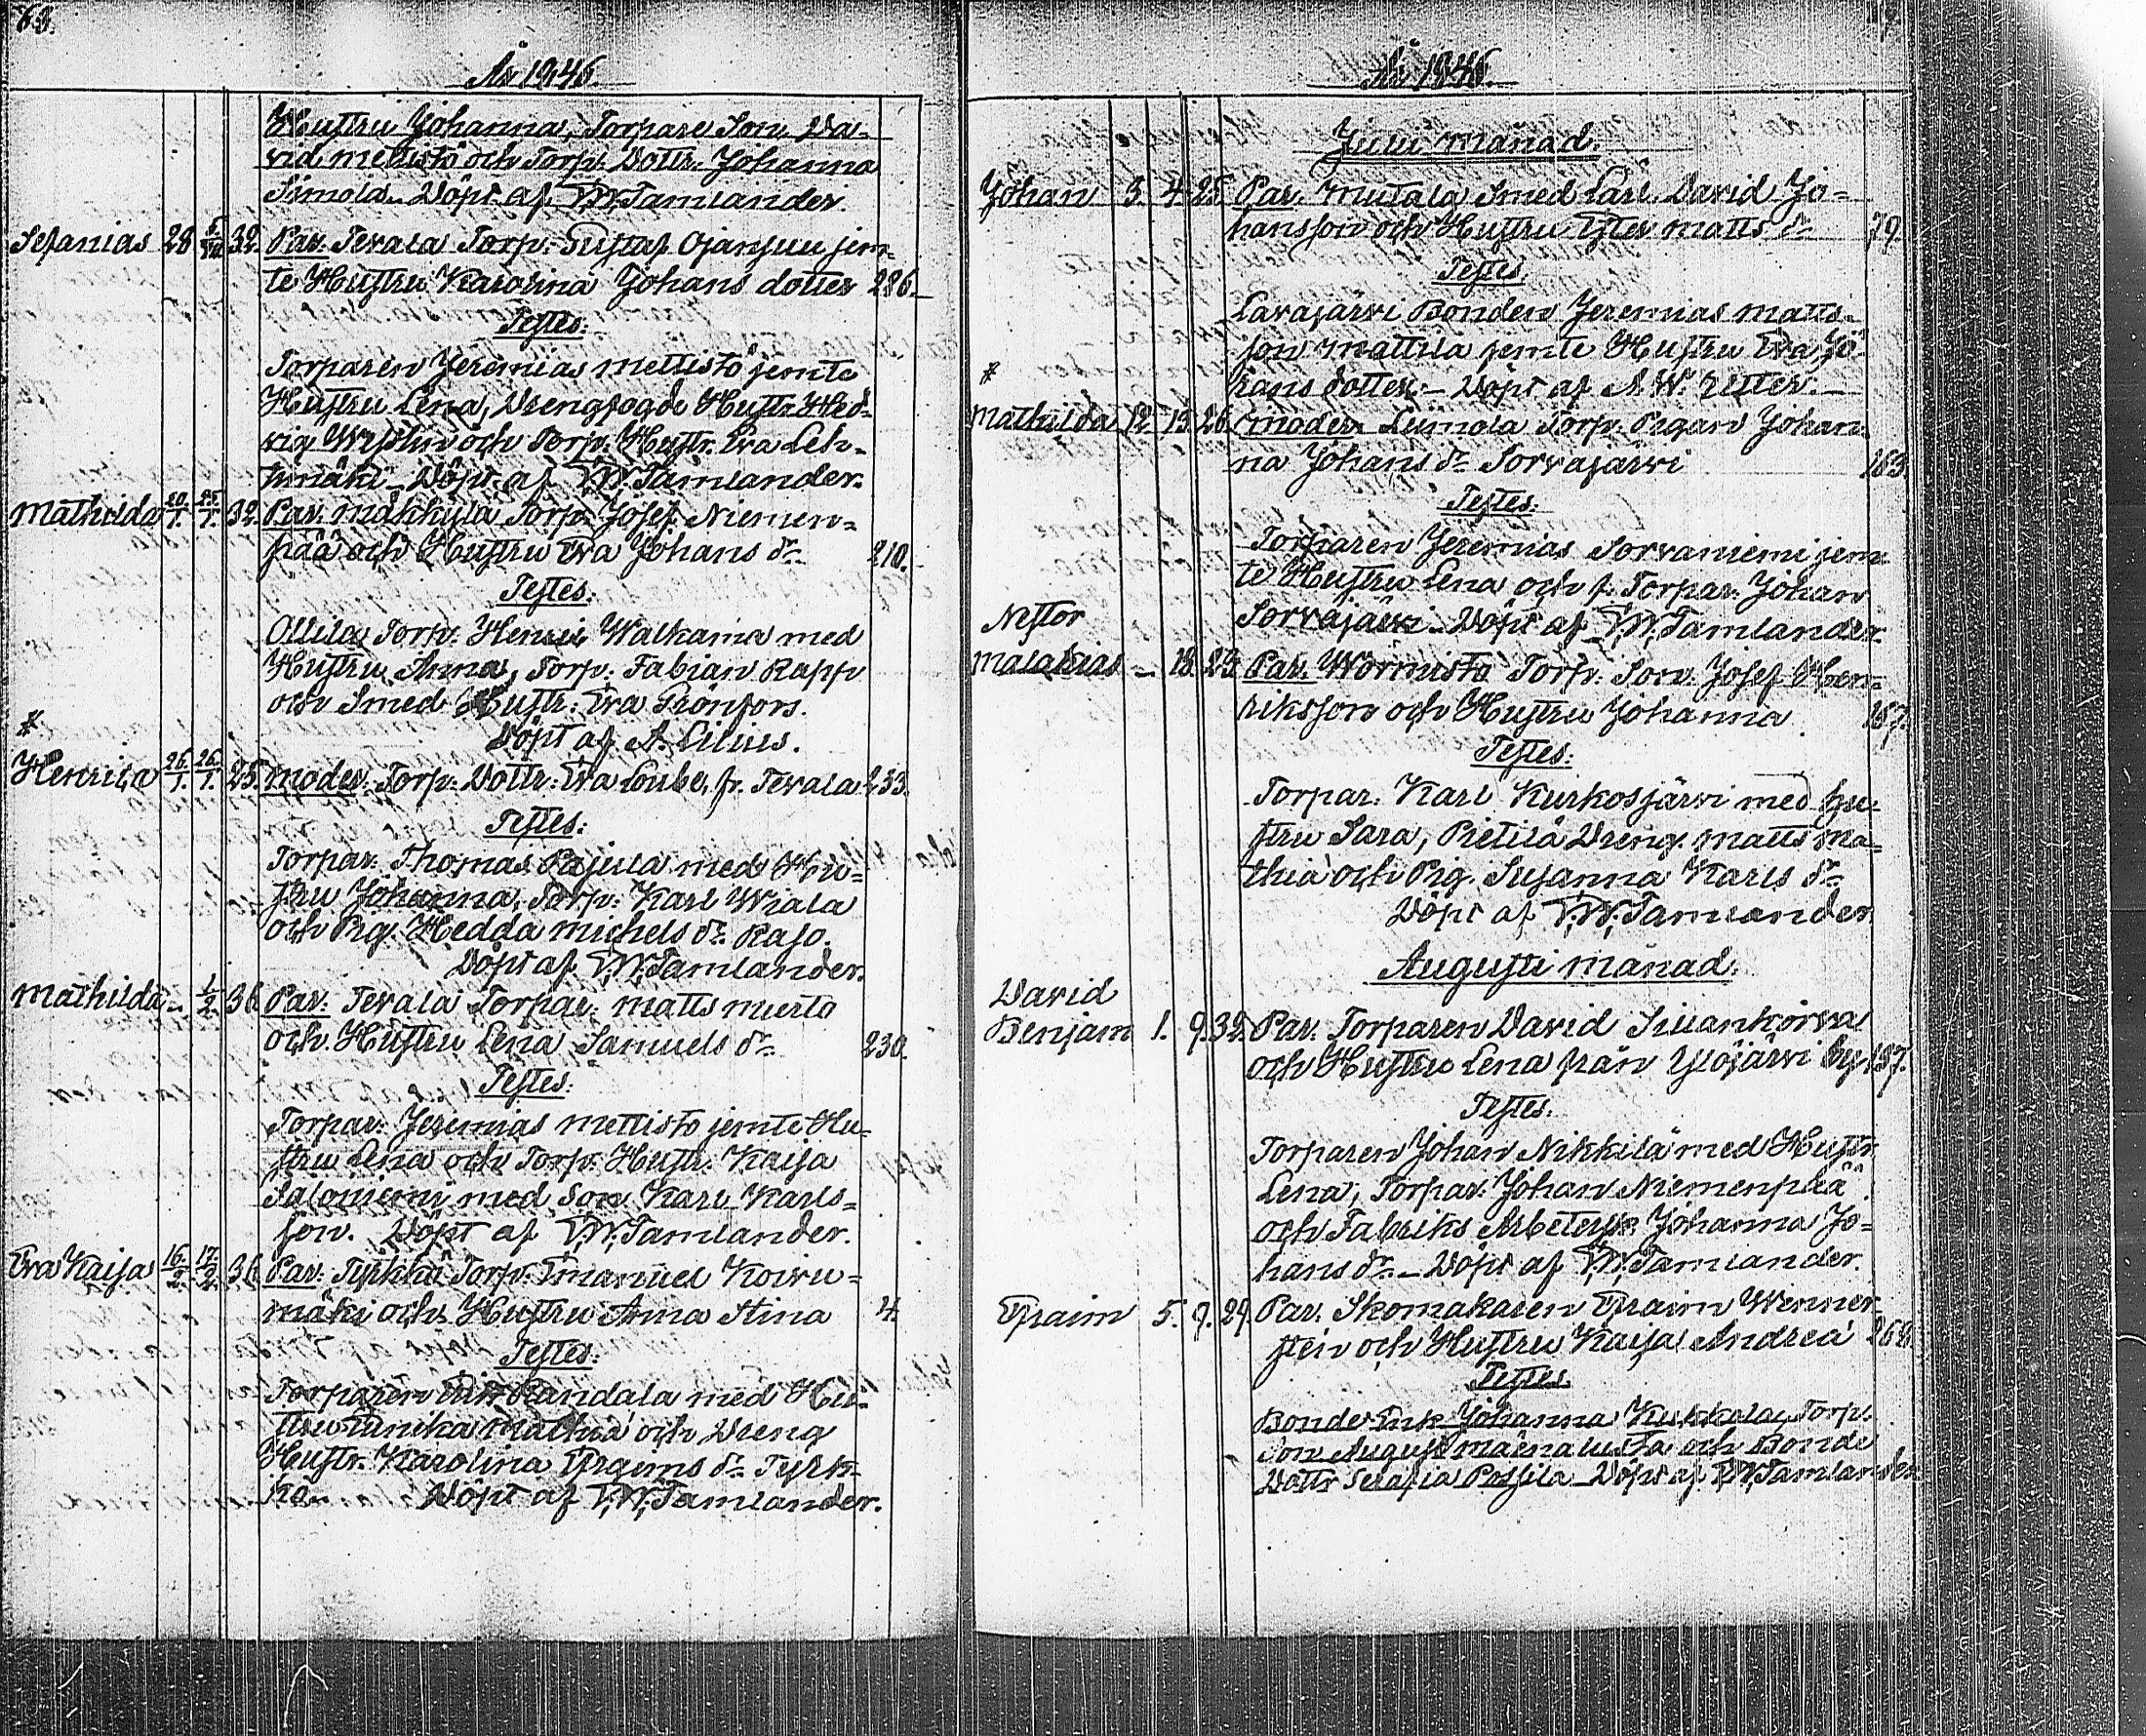 63.
År 1846.
Hustru Johanna, Torpare Son Da-
vid Mettistö och Torp. Dottr. Johanna
Simola. Döpt af T.W. Tamlander.
Sefanias 28 32 Par. Tevala Torp. Gustaf Ojansuu jem-
te Hustru Karolina Johans dotter 286.
Testes:
Torparen Jeremias Mettistö jemte
Hustru Lena, Drengfogde Hustr. Hed-
vig och Torp. Hustr. Eva Leh-
timäki. Döpt af T.W. Tamlander.
Mathilda 20/1. 25/1. 32. Par. Mäkkylä Torp. Josef Niemen-
pää och Hustru Eva Johans dr. 210.
Testes:
Ollila Torp. Henric Walkama med
Hustru Anna, Torp. Fabian Rapp
och Smed Hustr. Eva Grönfors.
Döpt af A. Lilius.
*
Henrica 26/1. 26/1. 25. Moder. Torp. Dottr. Eva fr. Tevala 233.
Testes:
Torpar. Thomas Pajula med Hu-
stru Johanna, Torp. Karl Wiala
och Pig. Hedda Michels dr. Raso.
Döpt af T.W. Tamlander.
Mathilda – 1/2. 36 Par. Tevala Torpar. Matts
och Hustru Lena Samuels dr. 230.
Testes:
Torpar. Jeremias Mettistö jemte Hu-
stru Lena och Torp. Hustr. Kaija
Saloniemi med Son Karl Karls-
son. Döpt af T.W. Tamlander.
Eva Kaisa 16/2. 17/2. 36 Par. Tyrkkö Torp. Emanuel Koivu-
mäki och Hustru Anna Stina 4.
Testes:
Torparen Erik Randala med Hu-
stru Ulrika Mathia och Dreng
Hustr. Karolina Efraims dr. Tyrk-
kö. Döpt af T.W. Tamlander.
År 1846.
Juli månad.
Johan 3. 4. 25. Par. Mutala Smed Carl David Jo-
hansson och Hustru Ester Matts dr. 79.
Testes.
Lavajärvi Bonden Jeremias Matts-
son Mattila jemte Hustru Eva Jo-
hans dotter. – Döpt af A.W. –
*
Mathilda 12. 13. 26. Moder. Liimola Torp. Pigan Johan-
na Johans dr. Sorvajärvi 163.
Testes:
Torparen Jeremias Sorvaniemi jem-
te Hustru Lena och f. Torpar. Johan
Sorvajärvi. Döpt af T.W. Tamlander.
Nestor
Malakias – 18. 23. Par. Wormisto Torp. Son Josef Hen-
riksson och Hustru Johanna 167.
Testes:
Torpar. Karl Kurkosjärvi med Hu-
stru Sara, Pietilä Dreng Matts Ma-
thia och Pig. Susanna Karls dr.
Döpt af T.W. Tamlander
Augusti månad.
David
Benjam 1. 9. 32. Par. Torparen David Siivankorva
och Hustru Lena från Ylöjärvi by 197.
Testes.
Torparen Johan Nikkilä med Hustr.
Lena, Torpar. Johan Niemenpää
och Fabriks Arbetersk. Johanna Jo-
hans dr. – Döpt af T.W. Tamlander.
Efraim 5. 9. 29. Par. Skomakaren Efraim Wenner-
sten och Hustru Kaisa Andrea 268.
Testes.
Bonde Enk. Johanna Kukkola, Torp.
Son August och Bonde
Dottr. Serafia Pessilä – Döpt af T.W. Tamlander